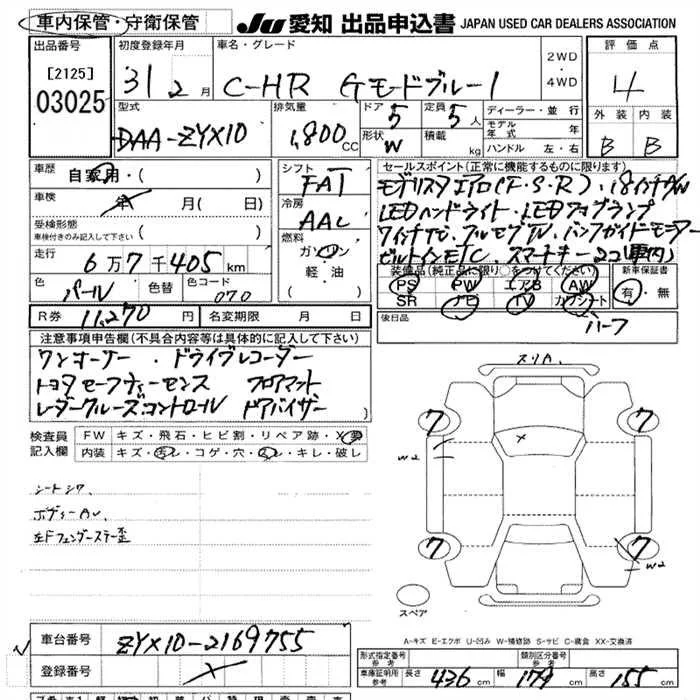 車内保管・守衛保管 JU 愛知 出品申込書 JAPAN USED CAR DEALERS ASSOCIATION
出品番号 初度登録年月 車名・グレード 2WD・4WD 評価点
[2125]
03025 31 2月 C-HR Gモードブルー1 4
型式 排気量 ドア 定員 ディーラー・並行 外装 内装
DAA-ZYX10 1,800cc 5 5人 モデル年式 年 B B
形状 W 積載 kg ハンドル 左・右
車歴 自家用・( ) シフト FAT セールスポイント(正常に機能するものに限ります)
車検 年 月( 日) 冷房 AAC モデリスタエアロ(F・S・R)・18インチAW
受検形態 燃料 LEDヘッドライト・LEDフォグランプ
車検付きのみ記入して下さい ( ) ガソリン
走行 6万7千405km 軽・油 ビルトインETC スマートキー2コ(車内)
色 パール 色替 色コード 070 ( ) 装備品(純正品に限り○をつけてください) 新車保証書
PS PW エアB AW 有・無
SR ナビ TV カワシート
R券 11,270円 名変期限 月 日 後日品
注意事項申告欄(不具合内容等は具体的に記入して下さい)
ワンオーナー・ドライブレコーダー
トヨタセーフティーセンス フロアマット
レーダークルーズコントロール ドアバイザー
スリA
検査員記入欄 FW キズ・飛石・ヒビ割・リペア跡・X
内装 キズ・汚レ・コゲ・穴・スレ・キレ・破レ
7 7
W2
×
シートシワ
ボディーAU
左Fフェンダーステー歪
7 7
W2
スペア
A-キズ E-エクボ U-凹み W-補修跡 S-サビ C-腐食 XX-交換済
車台番号 ZYX10-2169755
登録番号
形式指定番号 参考 類別区分番号 参考
車庫証明用 参考 長さ 436cm 幅 179cm 高さ 155cm